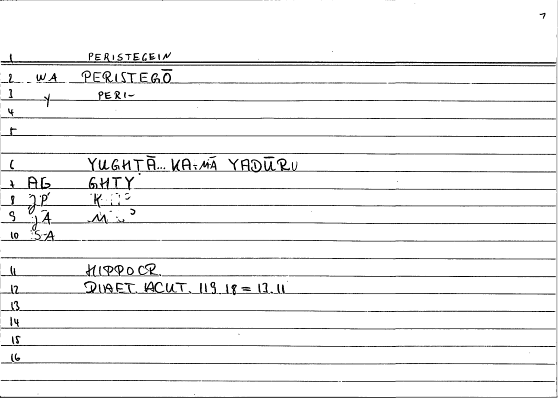 7
1 PERISTEGEIN
2 WA PERISTEGŌ
3 Y PERI-
4
5
6 YUGHṬĀ... KA-MĀ YADŪRU
7 AG GHṬY
8 JP K
9 JĀ M
10 SA
11 HIPPOCR.
12 DIAET. ACUT. 119.18 = 13.11
13
14
15
16